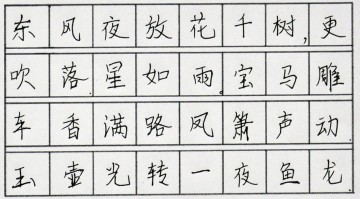 东风夜放花千树,更
吹落.星如雨.宝马雕
车香满路凤箫声动.
玉壶光转一夜鱼龙.